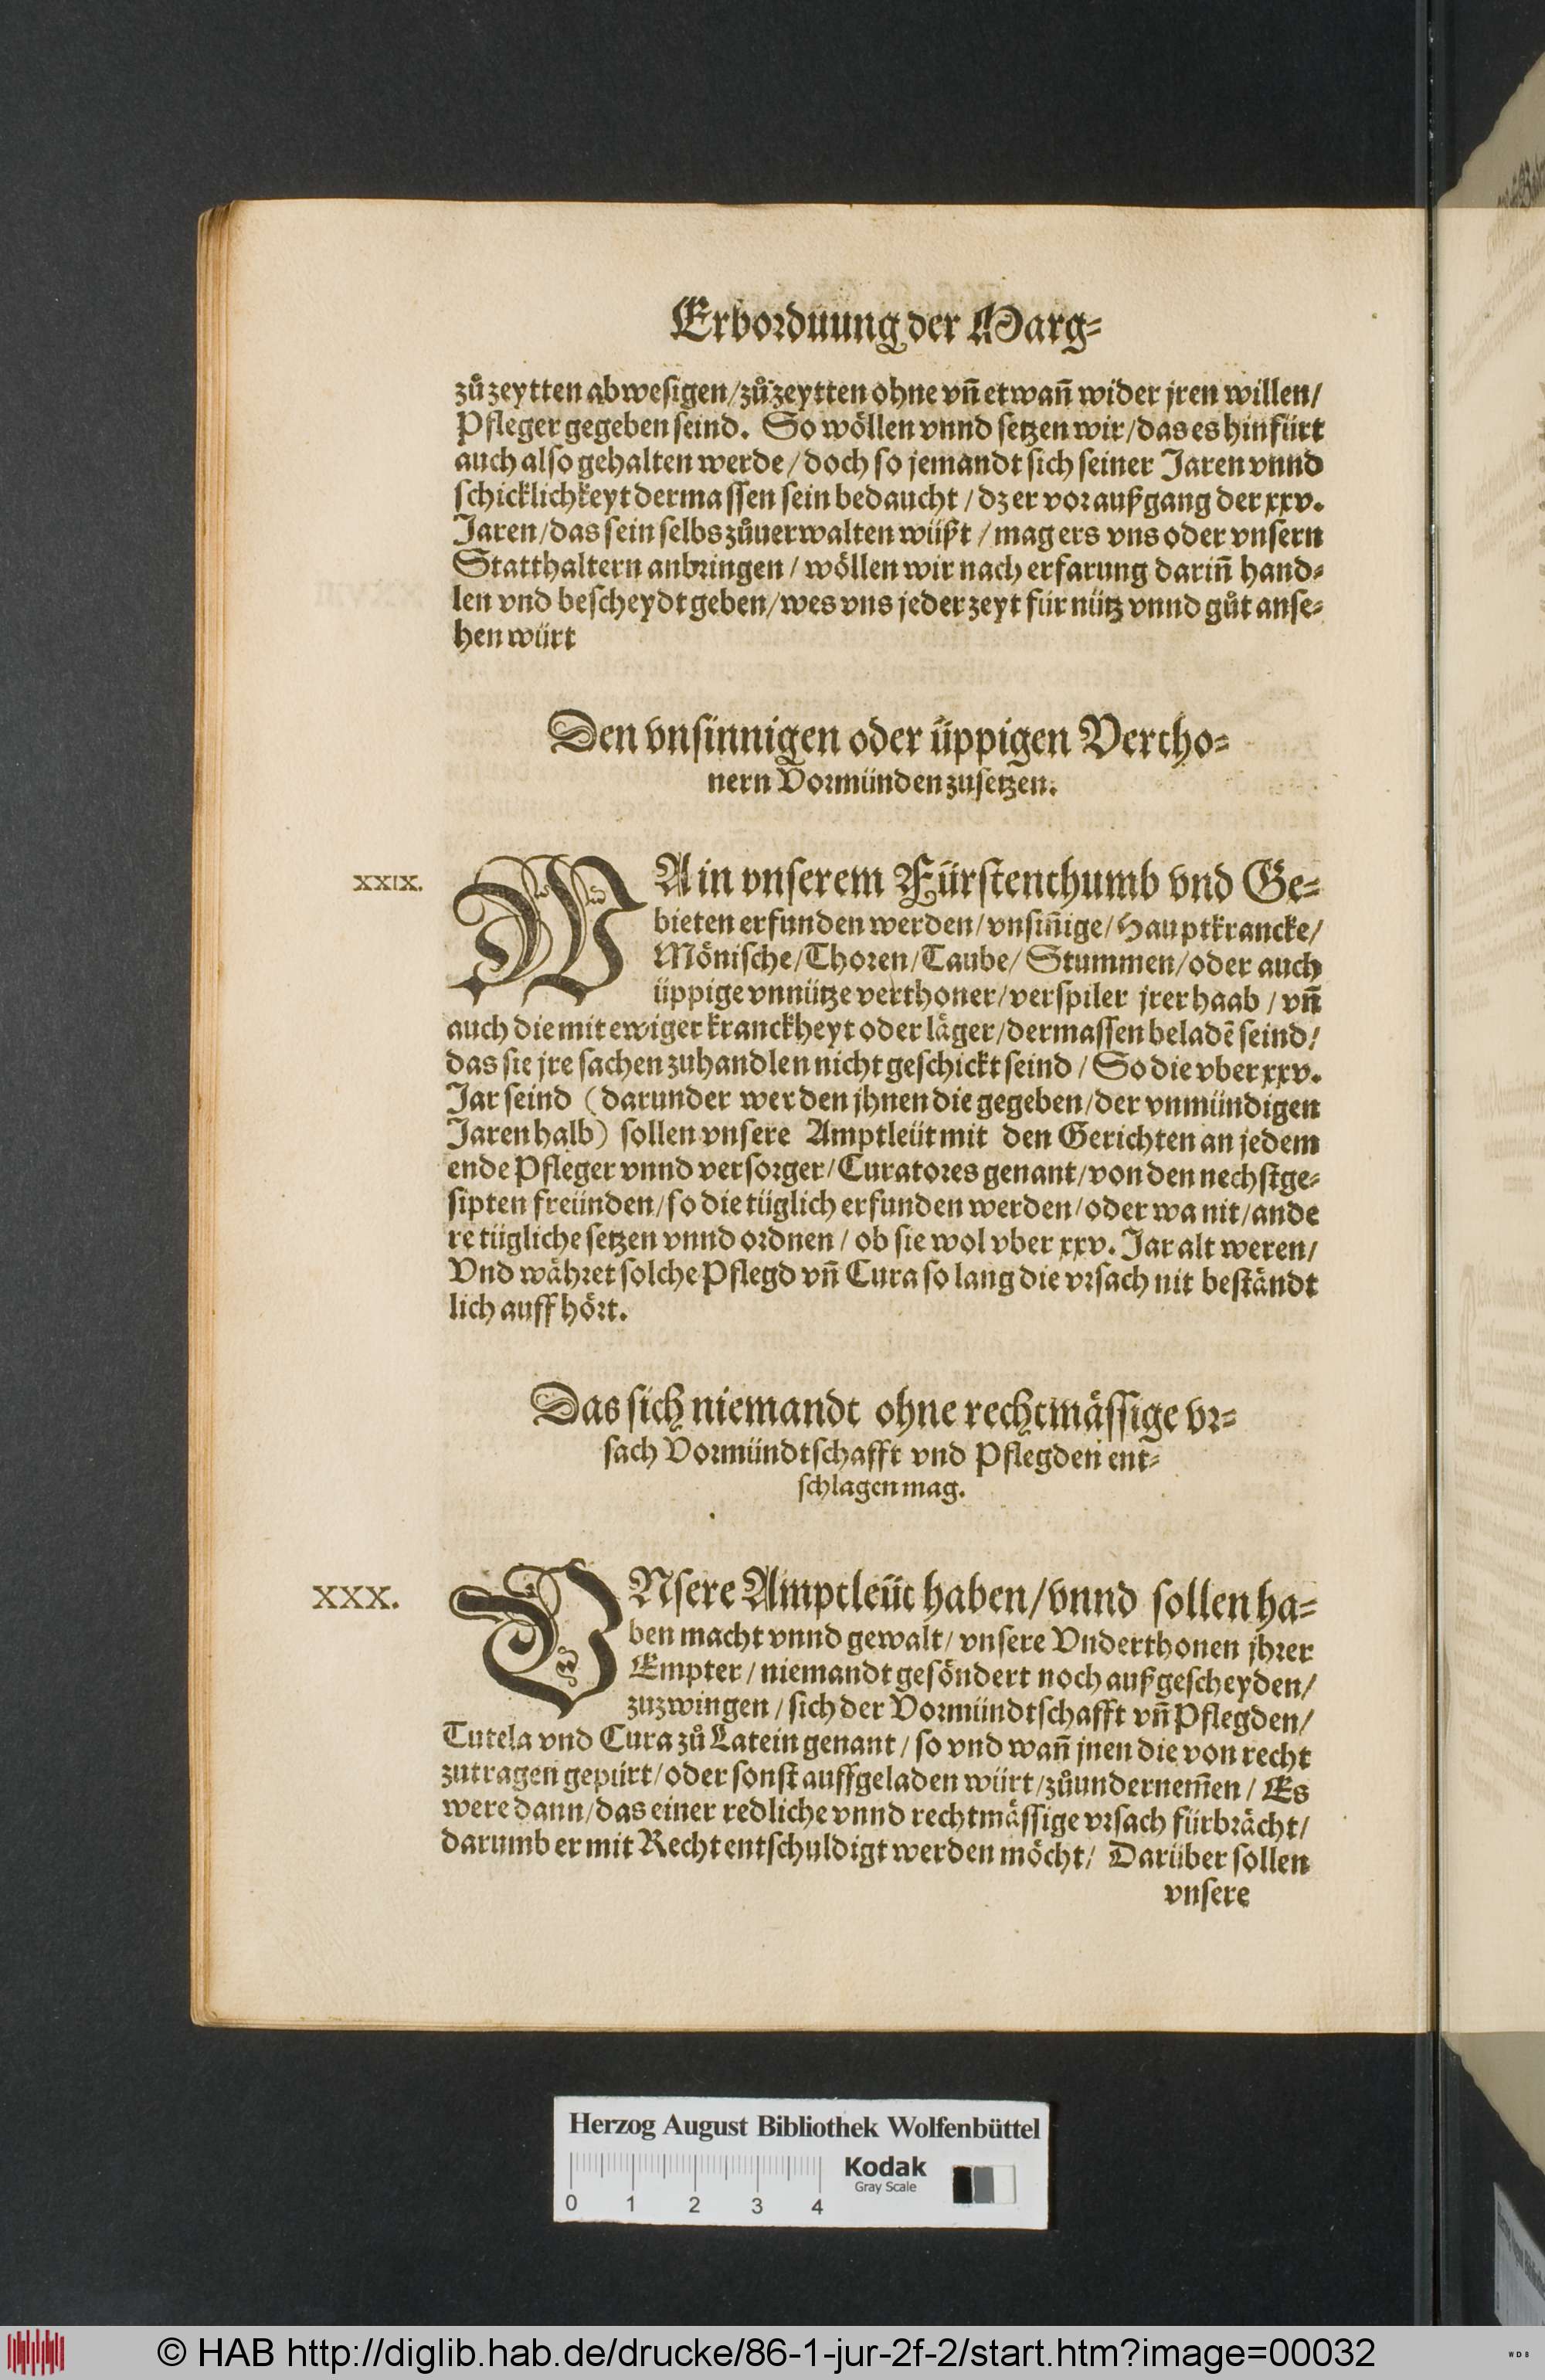 Erborduung der Marg⸗
zů zeytten abwesigen/zů zeytten ohne vn̄ etwan̄ wider jren willen/
Pfleger gegeben seind. So wöllen vnnd setzen wir/das es hinfürt
auch also gehalten werde/doch so jemandt sich seiner Jaren vnnd
schicklichkeyt dermassen sein bedaucht/dz er vor außgang der xxv.
Jaren/das sein selbs zůuerwalten wüßt/mag ers vns oder vnsern
Statthaltern anbringen/wöllen wir nach erfarung darin̄ hand⸗
len vnd bescheydt geben/wes vns jeder zeyt für nütz vnnd gůt anse⸗
hen würt
Den vnsinnigen oder üppigen Vertho⸗
nern Vormünden zusetzen.
XXIX.
WA in vnserem Fürstenthumb vnd Ge⸗
bieten erfunden werden/vnsin̄ige/Hauptkrancke/
Mönische/Thoren/Taube/Stummen/oder auch
üppige vnnütze verthoner/verspiler jrer haab/vn̄
auch die mit ewiger kranckheyt oder läger/dermassen beladē seind/
das sie jre sachen zuhandlen nicht geschickt seind/So die vber xxv.
Jar seind (darunder werden jhnen die gegeben/der vnmündigen
Jaren halb) sollen vnsere Amptleüt mit den Gerichten an jedem
ende Pfleger vnnd versorger/Curatores genant/von den nechstge⸗
sipten freünden/so die tüglich erfunden werden/oder wa nit/ande
re tügliche setzen vnnd ordnen/ob sie wol vber xxv. Jar alt weren/
Vnd währet solche Pflegd vn̄ Cura so lang die vrsach nit beständt
lich auffhört.
Das sich niemandt ohne rechtmässige vr⸗
sach Vormündtschafft vnd Pflegden ent⸗
schlagen mag.
XXX.
VNsere Amptleüt haben/vnnd sollen ha⸗
ben macht vnnd gewalt/vnsere Vnderthonen jhrer
Empter/niemandt gesöndert noch außgescheyden/
zuzwingen/sich der Vormündtschafft vn̄ Pflegden/
Tutela vnd Cura zů Latein genant/so vnd wan̄ jnen die von recht
zutragen gepürt/oder sonst auffgeladen würt/zůundernem̄en/Es
were dann/das einer redliche vnnd rechtmässige vrsach fürbrächt/
darumb er mit Recht entschuldigt werden möcht/Darüber sollen
vnsere
Herzog August Bibliothek Wolfenbüttel
Kodak
Gray Scale
0 1 2 3 4
© HAB http://diglib.hab.de/drucke/86-1-jur-2f-2/start.htm?image=00032
WDB